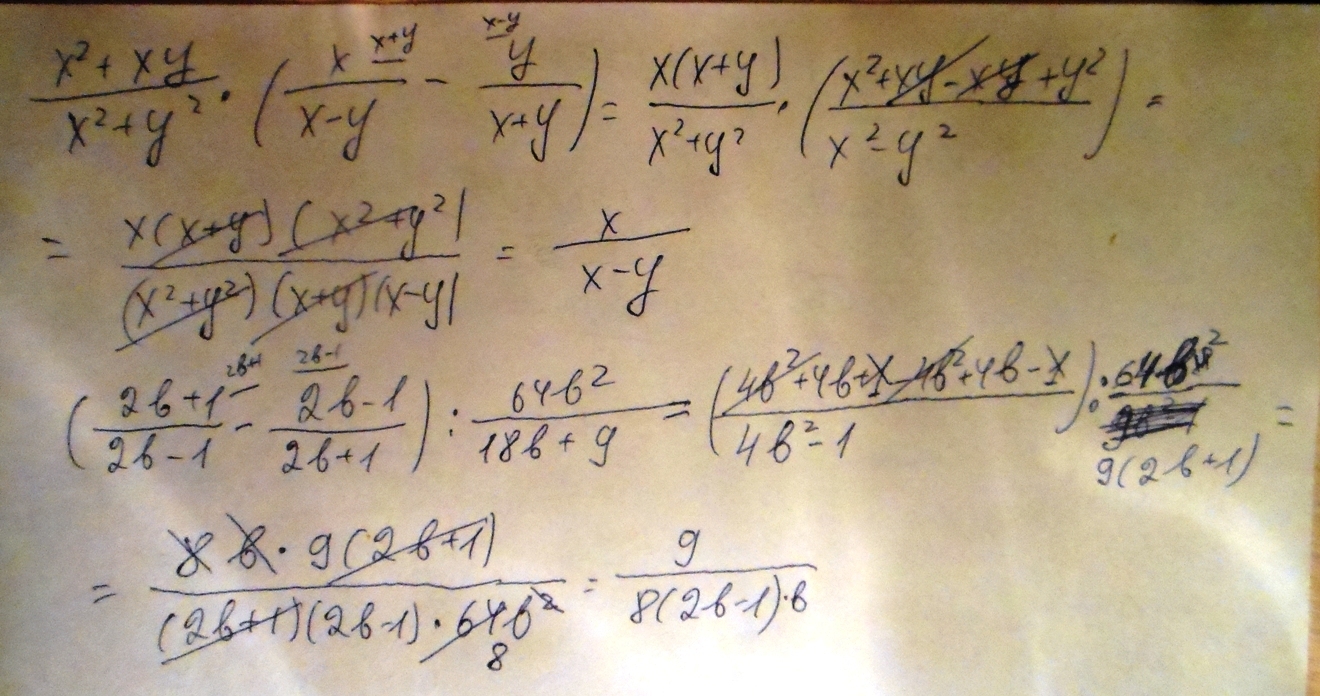 (x² + xy)/(x² + y²) · (x^(x+y)/(x-y) - y^(x-y)/(x+y)) = x(x+y)/(x²+y²) · ((x²+xy-xy+y²)/(x²-y²)) =
= x(x+y)(x²+y²)/((x²+y²)(x+y)(x-y)) = x/(x-y)
((2b+1)^(2b+1)/(2b-1) - (2b-1)^(2b-1)/(2b+1)) : 64b²/(18b+9) = ((4b²+4b+1-4b²+4b-1)/(4b²-1)) : 64b²/(9(2b+1)) =
= 8b · 9(2b+1)/((2b+1)(2b-1) · 64b² 8) = 9/(8(2b-1)·b)